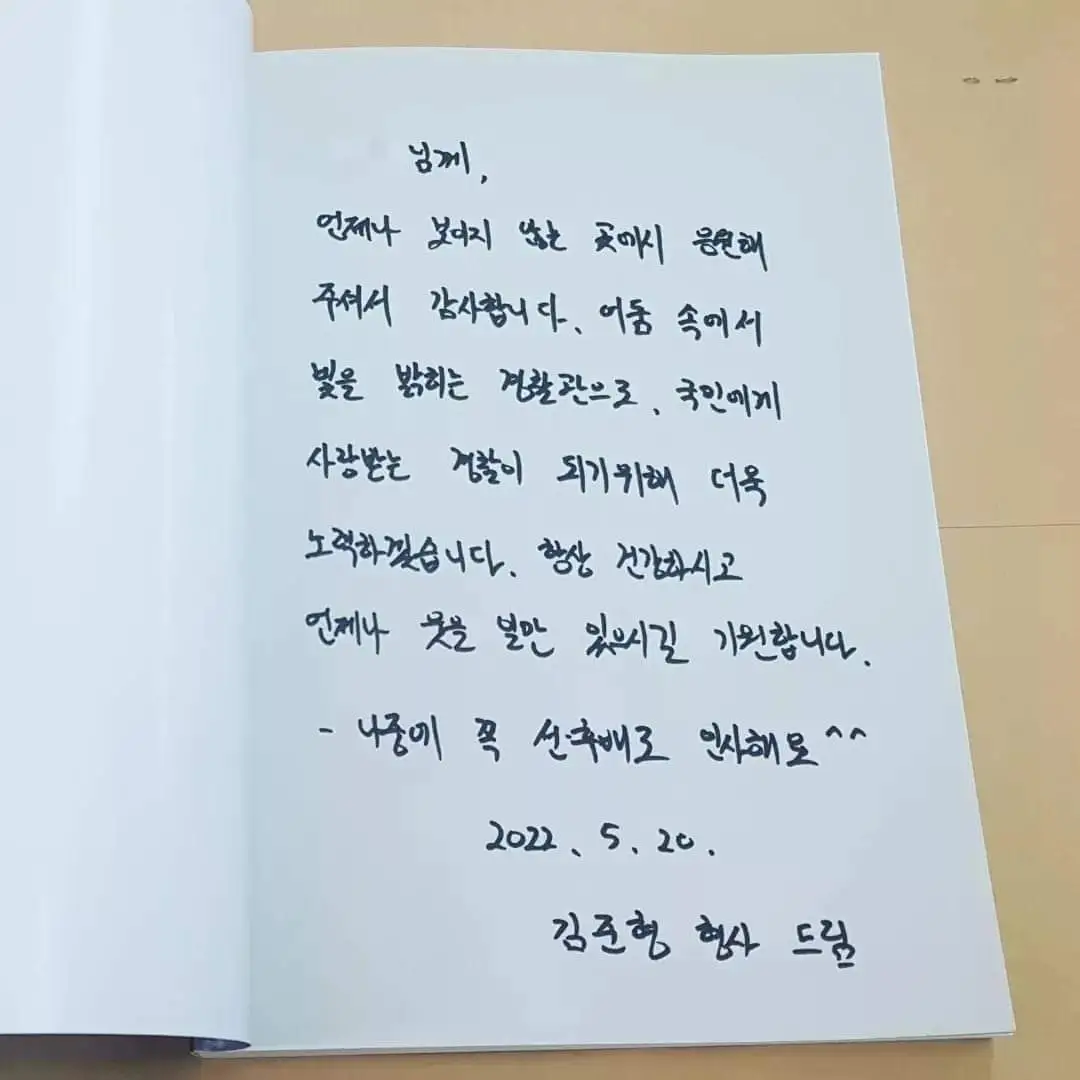 님께,
언제나 보이지 않는 곳에서 응원해
주셔서 감사합니다. 어둠 속에서
빛을 밝히는 경찰관으로, 국민에게
사랑받는 경찰이 되기위해 더욱
노력하겠습니다. 항상 건강하시고
언제나 웃을 일만 있으시길 기원합니다.
- 나중에 꼭 선·후배로 인사해요^^
2022. 5. 20.
김준형 형사 드림